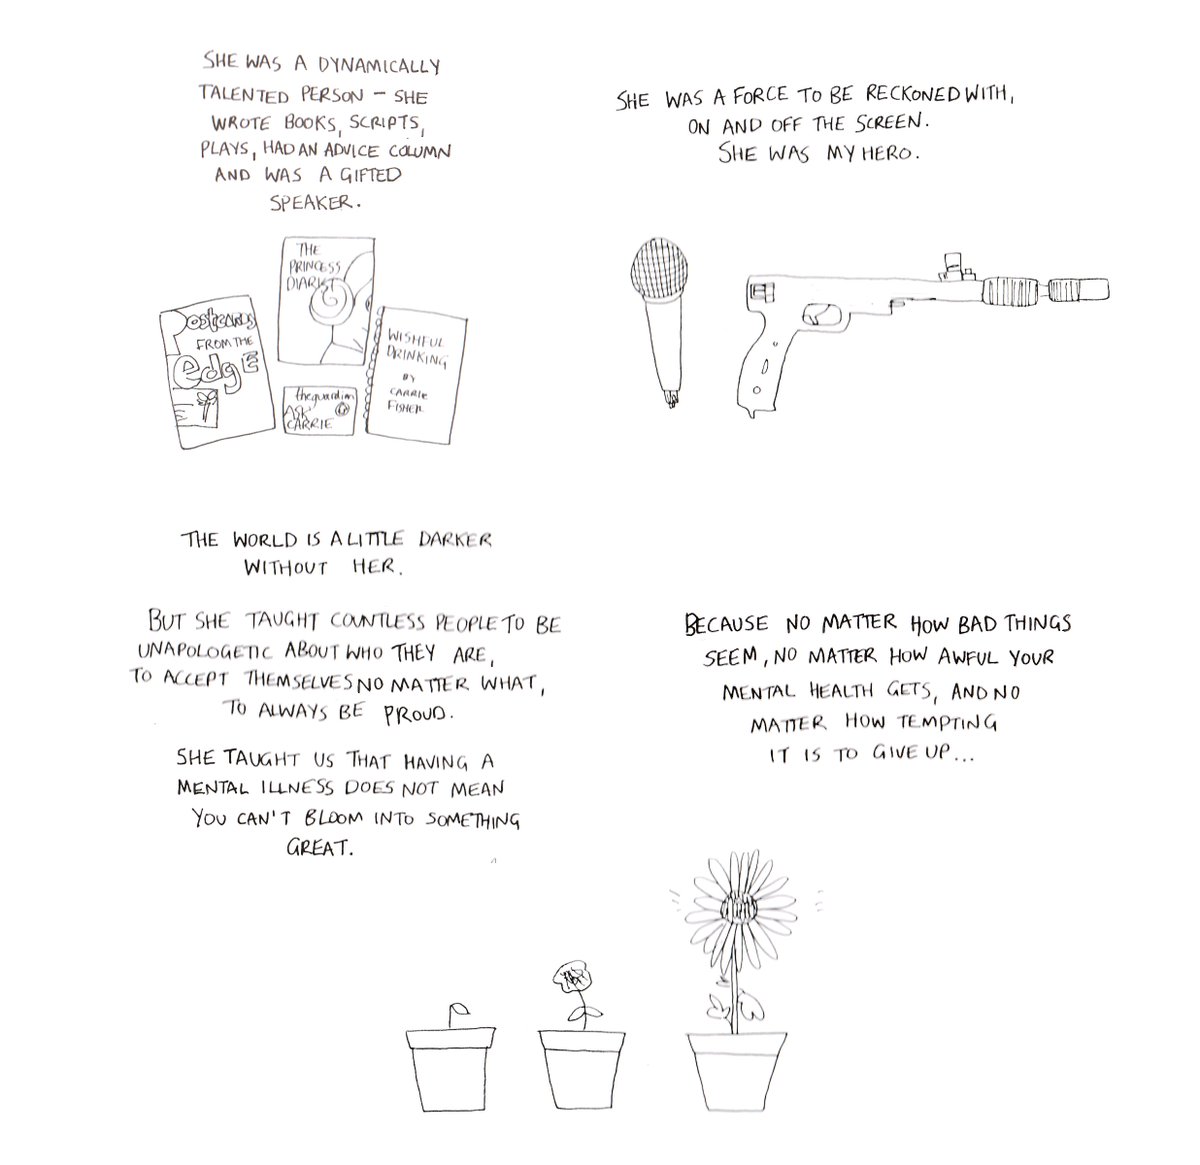 SHE WAS A DYNAMICALLY
TALENTED PERSON - SHE
WROTE BOOKS, SCRIPTS,
PLAYS, HAD AN ADVICE COLUMN
AND WAS A GIFTED
SPEAKER.
THE
PRINCESS
DIARIST
POSTCARDS
FROM THE
edgE
WISHFUL
DRINKING
BY
CARRIE
FISHER
theguardian
ASK
CARRIE
SHE WAS A FORCE TO BE RECKONED WITH,
ON AND OFF THE SCREEN.
SHE WAS MY HERO.
THE WORLD IS A LITTLE DARKER
WITHOUT HER.
BUT SHE TAUGHT COUNTLESS PEOPLE TO BE
UNAPOLOGETIC ABOUT WHO THEY ARE,
TO ACCEPT THEMSELVES NO MATTER WHAT,
TO ALWAYS BE PROUD.
SHE TAUGHT US THAT HAVING A
MENTAL ILLNESS DOES NOT MEAN
YOU CAN'T BLOOM INTO SOMETHING
GREAT.
BECAUSE NO MATTER HOW BAD THINGS
SEEM, NO MATTER HOW AWFUL YOUR
MENTAL HEALTH GETS, AND NO
MATTER HOW TEMPTING
IT IS TO GIVE UP...